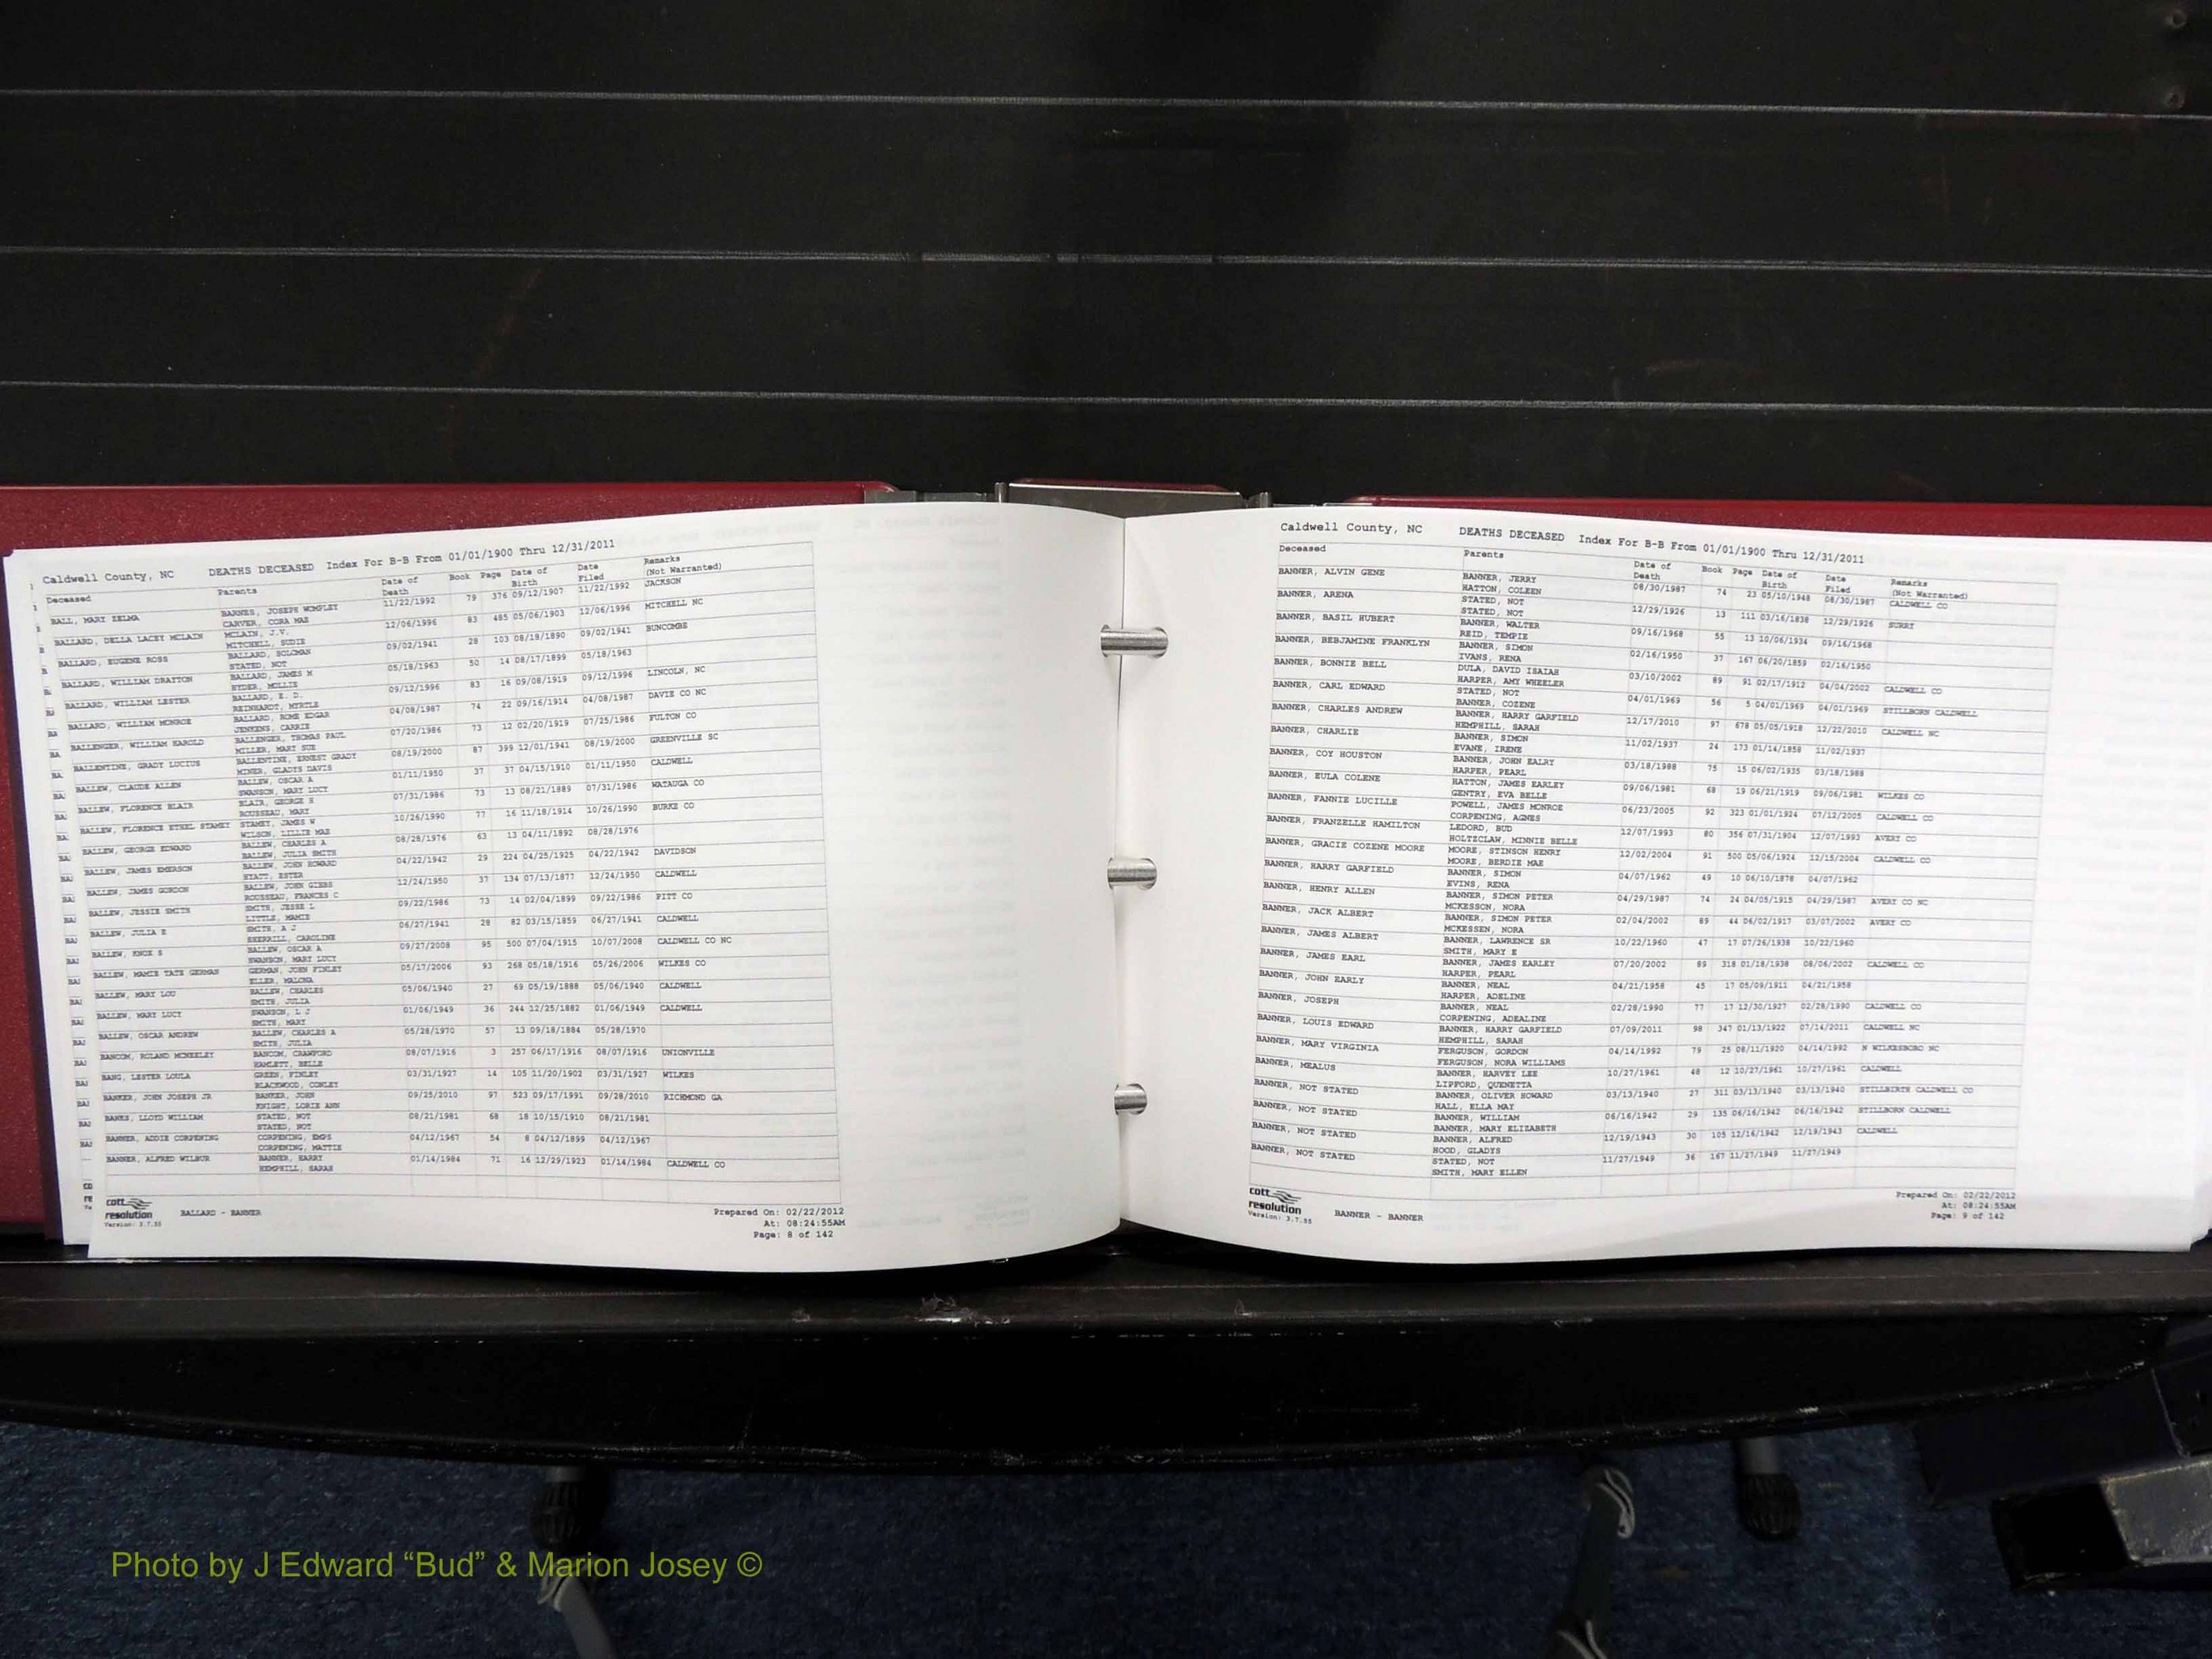 Caldwell County, NC DEATHS DECEASED Index For B-B From 01/01/1900 Thru 12/31/2011
Deceased Parents Date of Death Book Page Date of Birth Date Filed Remarks (Not Warranted)
BALL, MARY ZELMA BARNES, JOSEPH WOMPLEY 11/22/1992 79 376 09/12/1907 11/22/1992 JACKSON
CARVER, CORA MAE
BALLARD, DELLA LACEY MCLAIN MCLAIN, J.V. 12/06/1996 83 485 05/06/1903 12/06/1996 MITCHELL NC
MITCHELL, SUDIE
BALLARD, EUGENE ROSS BALLARD, SOLOMAN 09/02/1941 28 103 08/18/1890 09/02/1941 BUNCOMBE
STATED, NOT
BALLARD, WILLIAM DRAYTON BALLARD, JAMES M 05/18/1963 50 14 08/17/1899 05/18/1963
HYDER, MOLLIE
BALLARD, WILLIAM LESTER BALLARD, E. D. 09/12/1996 83 16 09/08/1919 09/12/1996 LINCOLN, NC
REINHARDT, MYRTLE
BALLARD, WILLIAM MONROE BALLARD, ROME EDGAR 04/08/1987 74 22 09/16/1914 04/08/1987 DAVIE CO NC
JENKENS, CARRIE
BALLENGER, WILLIAM HAROLD BALLENGER, THOMAS PAUL 07/20/1986 73 12 02/20/1919 07/25/1986 FULTON CO
MILLER, MARY SUE
BALLENTINE, GRADY LUCIUS BALLENTINE, ERNEST GRADY 08/19/2000 87 399 12/01/1941 08/19/2000 GREENVILLE SC
MINER, GLADYS DAVIS
BALLEW, CLAUDE ALLEN BALLEW, OSCAR A 01/11/1950 37 37 04/15/1910 01/11/1950 CALDWELL
SWANSON, MARY LUCY
BALLEW, FLORENCE BLAIR BLAIR, GEORGE H 07/31/1986 73 13 08/21/1889 07/31/1986 WATAUGA CO
ROUSSEAU, MARY
BALLEW, FLORENCE ETHEL STAMEY STAMEY, JAMES W 10/26/1990 77 16 11/18/1914 10/26/1990 BURKE CO
WILSON, LILLIE MAE
BALLEW, GEORGE EDWARD BALLEW, CHARLES A 08/28/1976 63 13 04/11/1892 08/28/1976
BALLEW, JULIA SMITH
BALLEW, JAMES EMERSON BALLEW, JOHN HOWARD 04/22/1942 29 224 04/25/1925 04/22/1942 DAVIDSON
HYATT, ESTER
BALLEW, JAMES GORDON BALLEW, JOHN GIBBS 12/24/1950 37 134 07/13/1877 12/24/1950 CALDWELL
ROUSSEAU, FRANCES C
BALLEW, JESSIE SMITH SMITH, JESSE L 09/22/1986 73 14 02/04/1899 09/22/1986 PITT CO
LITTLE, MAMIE
BALLEW, JULIA E SMITH, A J 06/27/1941 28 82 03/15/1859 06/27/1941 CALDWELL
SHERRILL, CAROLINE
BALLEW, KNOX S BALLEW, OSCAR A 09/27/2008 95 500 07/04/1915 10/07/2008 CALDWELL CO NC
SWANSON, MARY LUCY
BALLEW, MAMIE TATE GERMAN GERMAN, JOHN FINLEY 05/17/2006 93 268 05/18/1916 05/26/2006 WILKES CO
ELLER, MALONA
BALLEW, MARY LOU BALLEW, CHARLES 05/06/1940 27 69 05/19/1888 05/06/1940 CALDWELL
SMITH, JULIA
BALLEW, MARY LUCY SWANSON, L J 01/06/1949 36 244 12/25/1882 01/06/1949 CALDWELL
SMITH, MARY
BALLEW, OSCAR ANDREW BALLEW, CHARLES A 05/28/1970 57 13 09/18/1884 05/28/1970
SMITH, JULIA
BANCOM, ROLAND MCNEELEY BANCOM, CRAWFORD 08/07/1916 3 257 06/17/1916 08/07/1916 UNIONVILLE
HAMLETT, BELLE
BANG, LESTER LOULA GREEN, FINLEY 03/31/1927 14 105 11/20/1902 03/31/1927 WILKES
BLACKWOOD, CONLEY
BANKER, JOHN JOSEPH JR BANKER, JOHN 09/25/2010 97 523 09/17/1991 09/28/2010 RICHMOND GA
KNIGHT, LORIE ANN
BANKS, LLOYD WILLIAM STATED, NOT 08/21/1981 68 18 10/15/1910 08/21/1981
STATED, NOT
BANNER, ADDIE CORPENING CORPENING, EMPS 04/12/1967 54 8 04/12/1899 04/12/1967
CORPENING, MATTIE
BANNER, ALFRED WILBUR BANNER, HARRY 01/14/1984 71 16 12/29/1923 01/14/1984 CALDWELL CO
HEMPHILL, SARAH
cott resolution
Version: 3.7.55
BALLARD - BANNER
Prepared On: 02/22/2012
At: 08:24:55AM
Page: 8 of 142
Caldwell County, NC DEATHS DECEASED Index For B-B From 01/01/1900 Thru 12/31/2011
Deceased Parents Date of Death Book Page Date of Birth Date Filed Remarks (Not Warranted)
BANNER, ALVIN GENE BANNER, JERRY 08/30/1987 74 23 05/10/1948 08/30/1987 CALDWELL CO
HATTON, COLEEN
BANNER, ARENA STATED, NOT 12/29/1926 13 111 03/16/1838 12/29/1926 SURRY
STATED, NOT
BANNER, BASIL HUBERT BANNER, WALTER 09/16/1968 55 13 10/06/1934 09/16/1968
REID, TEMPIE
BANNER, BEBJAMINE FRANKLYN BANNER, SIMON 02/16/1950 37 167 06/20/1859 02/16/1950
IVANS, RENA
BANNER, BONNIE BELL DULA, DAVID ISAIAH 03/10/2002 89 91 02/17/1912 04/04/2002 CALDWELL CO
HARPER, AMY WHEELER
BANNER, CARL EDWARD STATED, NOT 04/01/1969 56 5 04/01/1969 04/01/1969 STILLBORN CALDWELL
BANNER, COZENE
BANNER, CHARLES ANDREW BANNER, HARRY GARFIELD 12/17/2010 97 678 05/05/1918 12/22/2010 CALDWELL NC
HEMPHILL, SARAH
BANNER, CHARLIE BANNER, SIMON 11/02/1937 24 173 01/14/1858 11/02/1937
EVANE, IRENE
BANNER, COY HOUSTON BANNER, JOHN EALRY 03/18/1988 75 15 06/02/1935 03/18/1988
HARPER, PEARL
BANNER, EULA COLENE HATTON, JAMES EARLEY 09/06/1981 68 19 06/21/1919 09/06/1981 WILKES CO
GENTRY, EVA BELLE
BANNER, FANNIE LUCILLE POWELL, JAMES MONROE 06/23/2005 92 323 01/01/1924 07/12/2005 CALDWELL CO
CORPENING, AGNES
BANNER, FRANZELLE HAMILTON LEDORD, BUD 12/07/1993 80 356 07/31/1904 12/07/1993 AVERY CO
HOLTZCLAW, MINNIE BELLE
BANNER, GRACIE COZENE MOORE MOORE, STINSON HENRY 12/02/2004 91 500 05/06/1924 12/15/2004 CALDWELL CO
MOORE, BERDIE MAE
BANNER, HARRY GARFIELD BANNER, SIMON 04/07/1962 49 10 06/10/1878 04/07/1962
EVINS, RENA
BANNER, HENRY ALLEN BANNER, SIMON PETER 04/29/1987 74 24 04/05/1915 04/29/1987 AVERY CO NC
MCKESSON, NORA
BANNER, JACK ALBERT BANNER, SIMON PETER 02/04/2002 89 44 06/02/1917 03/07/2002 AVERY CO
MCKESSEN, NORA
BANNER, JAMES ALBERT BANNER, LAWRENCE SR 10/22/1960 47 17 07/26/1938 10/22/1960
SMITH, MARY E
BANNER, JAMES EARL BANNER, JAMES EARLEY 07/20/2002 89 318 01/18/1938 08/06/2002 CALDWELL CO
HARPER, PEARL
BANNER, JOHN EARLY BANNER, NEAL 04/21/1958 45 17 05/09/1911 04/21/1958
HARPER, ADELINE
BANNER, JOSEPH BANNER, NEAL 02/28/1990 77 17 12/30/1927 02/28/1990 CALDWELL CO
CORPENING, ADEALINE
BANNER, LOUIS EDWARD BANNER, HARRY GARFIELD 07/09/2011 98 347 01/13/1922 07/14/2011 CALDWELL NC
HEMPHILL, SARAH
BANNER, MARY VIRGINIA FERGUSON, GORDON 04/14/1992 79 25 08/11/1920 04/14/1992 N WILKESBORO NC
FERGUSON, NORA WILLIAMS
BANNER, MEALUS BANNER, HARVEY LEE 10/27/1961 48 12 10/27/1961 10/27/1961 CALDWELL
LIPFORD, QUENETTA
BANNER, NOT STATED BANNER, OLIVER HOWARD 03/13/1940 27 311 03/13/1940 03/13/1940 STILLBIRTH CALDWELL CO
HALL, ELLA MAY
BANNER, NOT STATED BANNER, WILLIAM 06/16/1942 29 135 06/16/1942 06/16/1942 STILLBORN CALDWELL
BANNER, MARY ELIZABETH
BANNER, NOT STATED BANNER, ALFRED 12/19/1943 30 105 12/16/1942 12/19/1943 CALDWELL
HOOD, GLADYS
BANNER, NOT STATED STATED, NOT 11/27/1949 36 167 11/27/1949 11/27/1949
SMITH, MARY ELLEN
cott resolution
Version: 3.7.55
BANNER - BANNER
Prepared On: 02/22/2012
At: 08:24:55AM
Page: 9 of 142
Photo by J Edward “Bud” & Marion Josey ©